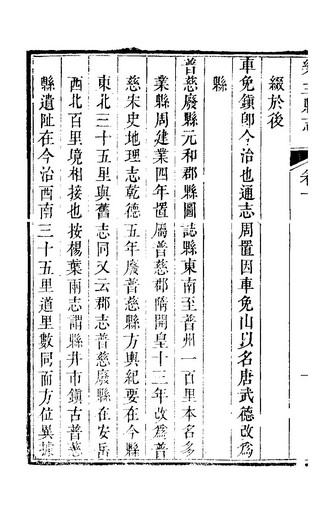 樂至縣志
卷一
綴於後
車免鎮卽今治也通志周置因車免山以名唐武德改爲
縣
普慈廢縣元和郡縣圖誌縣東南至普州一百里本名多
業縣周建業四年置屬普慈郡隋開皇十三年改爲普
慈宋史地理志乾德五年廢普慈縣方輿紀要在今縣
東北三十五里與舊志同又云郡志普慈廢縣在安岳
西北百里境相接也按楊葉雨志謂縣井市鎮古普慈
縣遺址在今治西南三十五里道里數同而方位異據